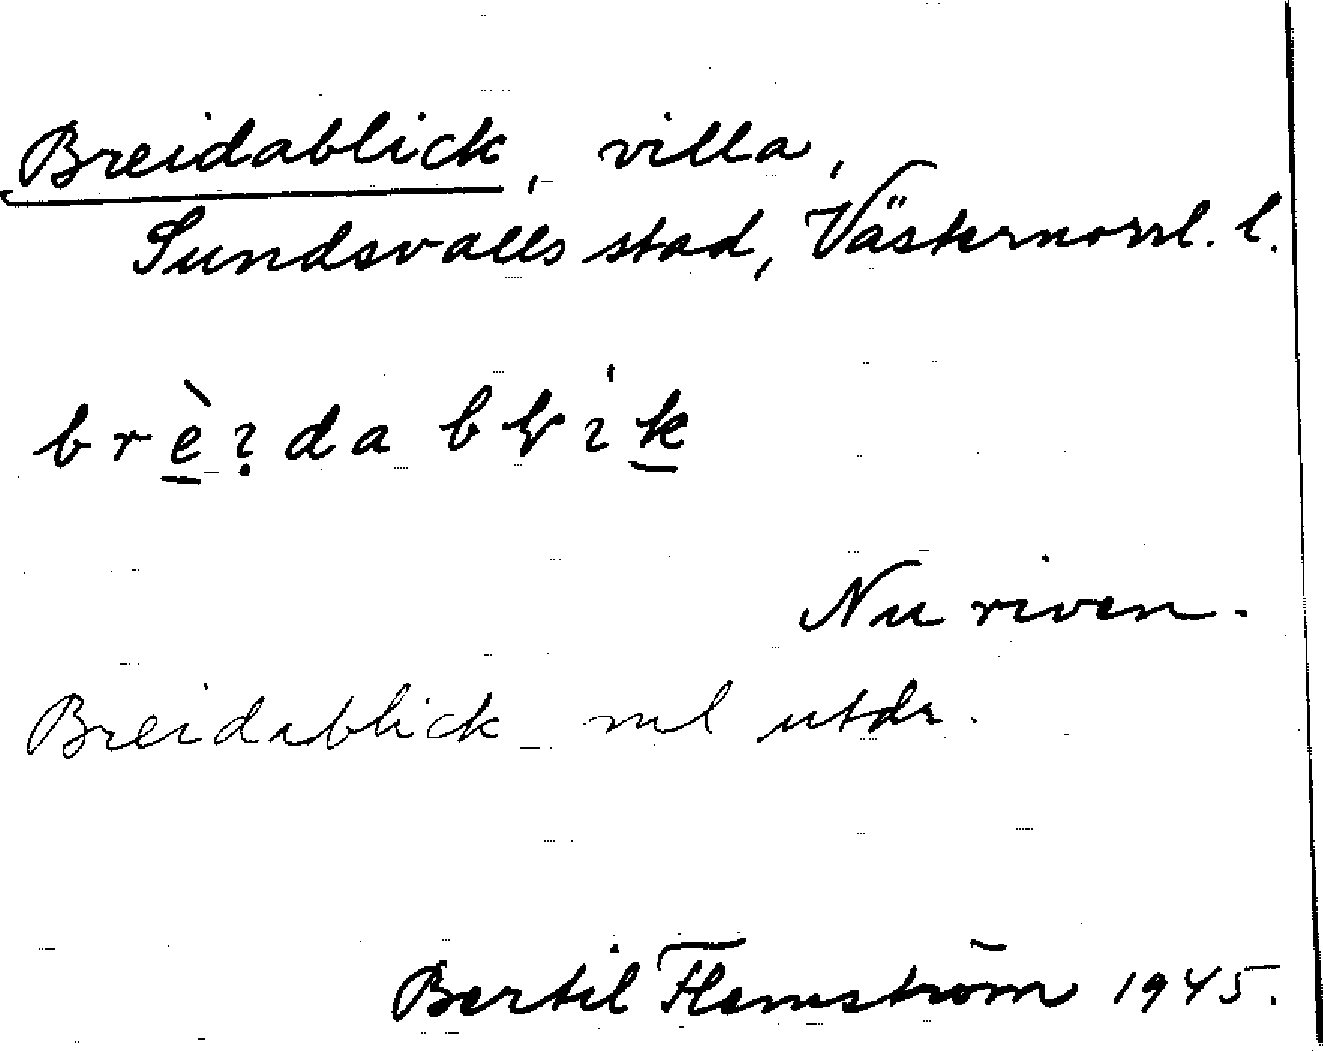 Breidablick, villa,
Sundsvalls stad, Västernorrl. l.
Nu riven.
Breidablick nml utdr.
Bertil Flemström 1945.